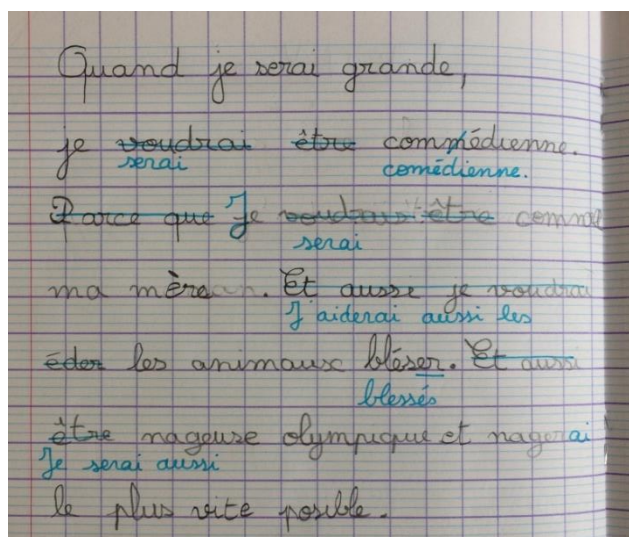 Quand je serai grande,
je voudrai être commédienne.
serai comédienne.
Parce que Je voudrais être comme
serai
ma mère. Et ausse je voudrai
J'aiderai aussi les
éder les animaux bléser. Et aussi
blessés
être nageuse olympique et nagerai
Je serai aussi
le plus vite posible.